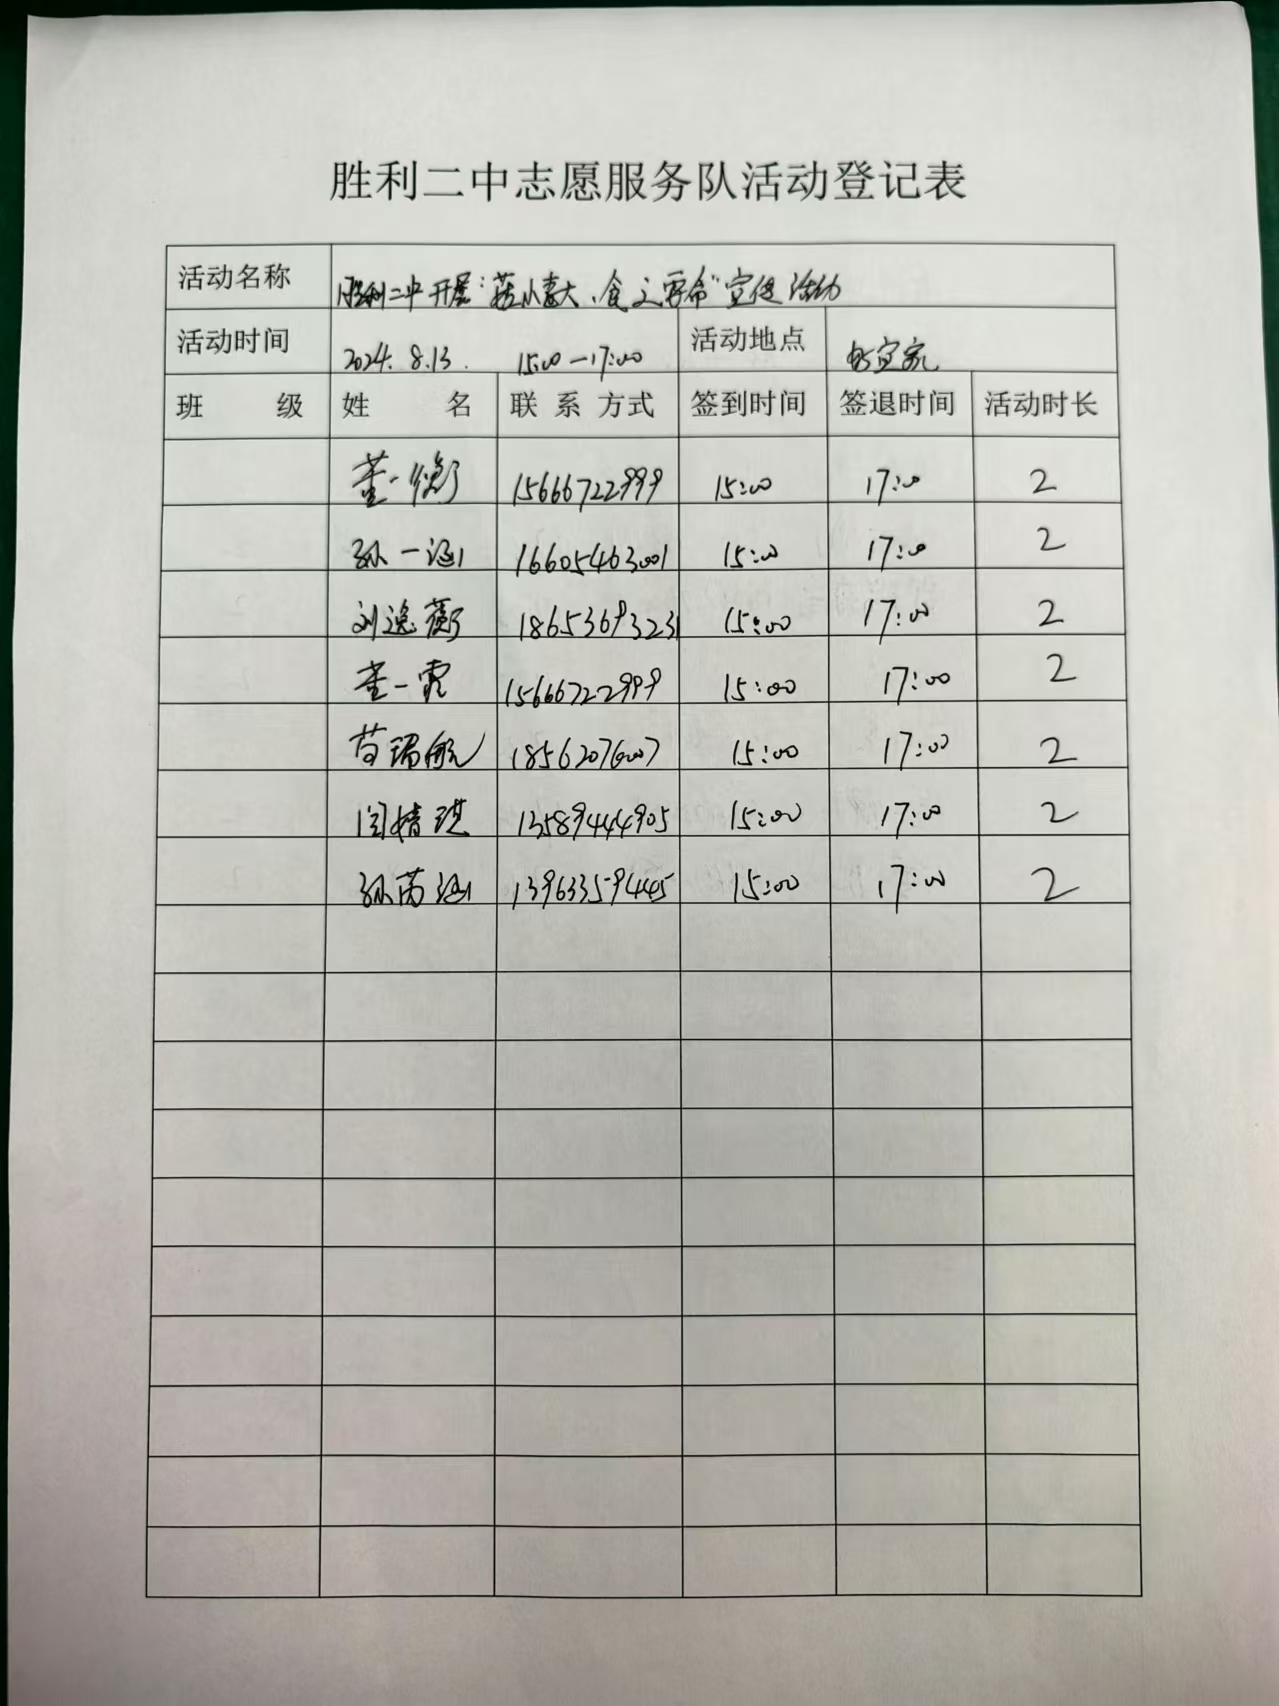 胜利二中志愿服务队活动登记表
活动名称 胜利二中开展"菇小毒大、食之要命"宣传活动
活动时间 2024.8.13. 15:00—17:00 活动地点 宜家
班 级 姓 名 联系方式 签到时间 签退时间 活动时长
董一衡 15666722999 15:00 17:00 2
孙一涵 16605463001 15:00 17:00 2
刘逸蘅 18653693231 15:00 17:00 2
董一霓 15666722999 15:00 17:00 2
苟瑞航 18562076007 15:00 17:00 2
闫婧琪 13589444905 15:00 17:00 2
孙芮涵 13963359445 15:00 17:00 2